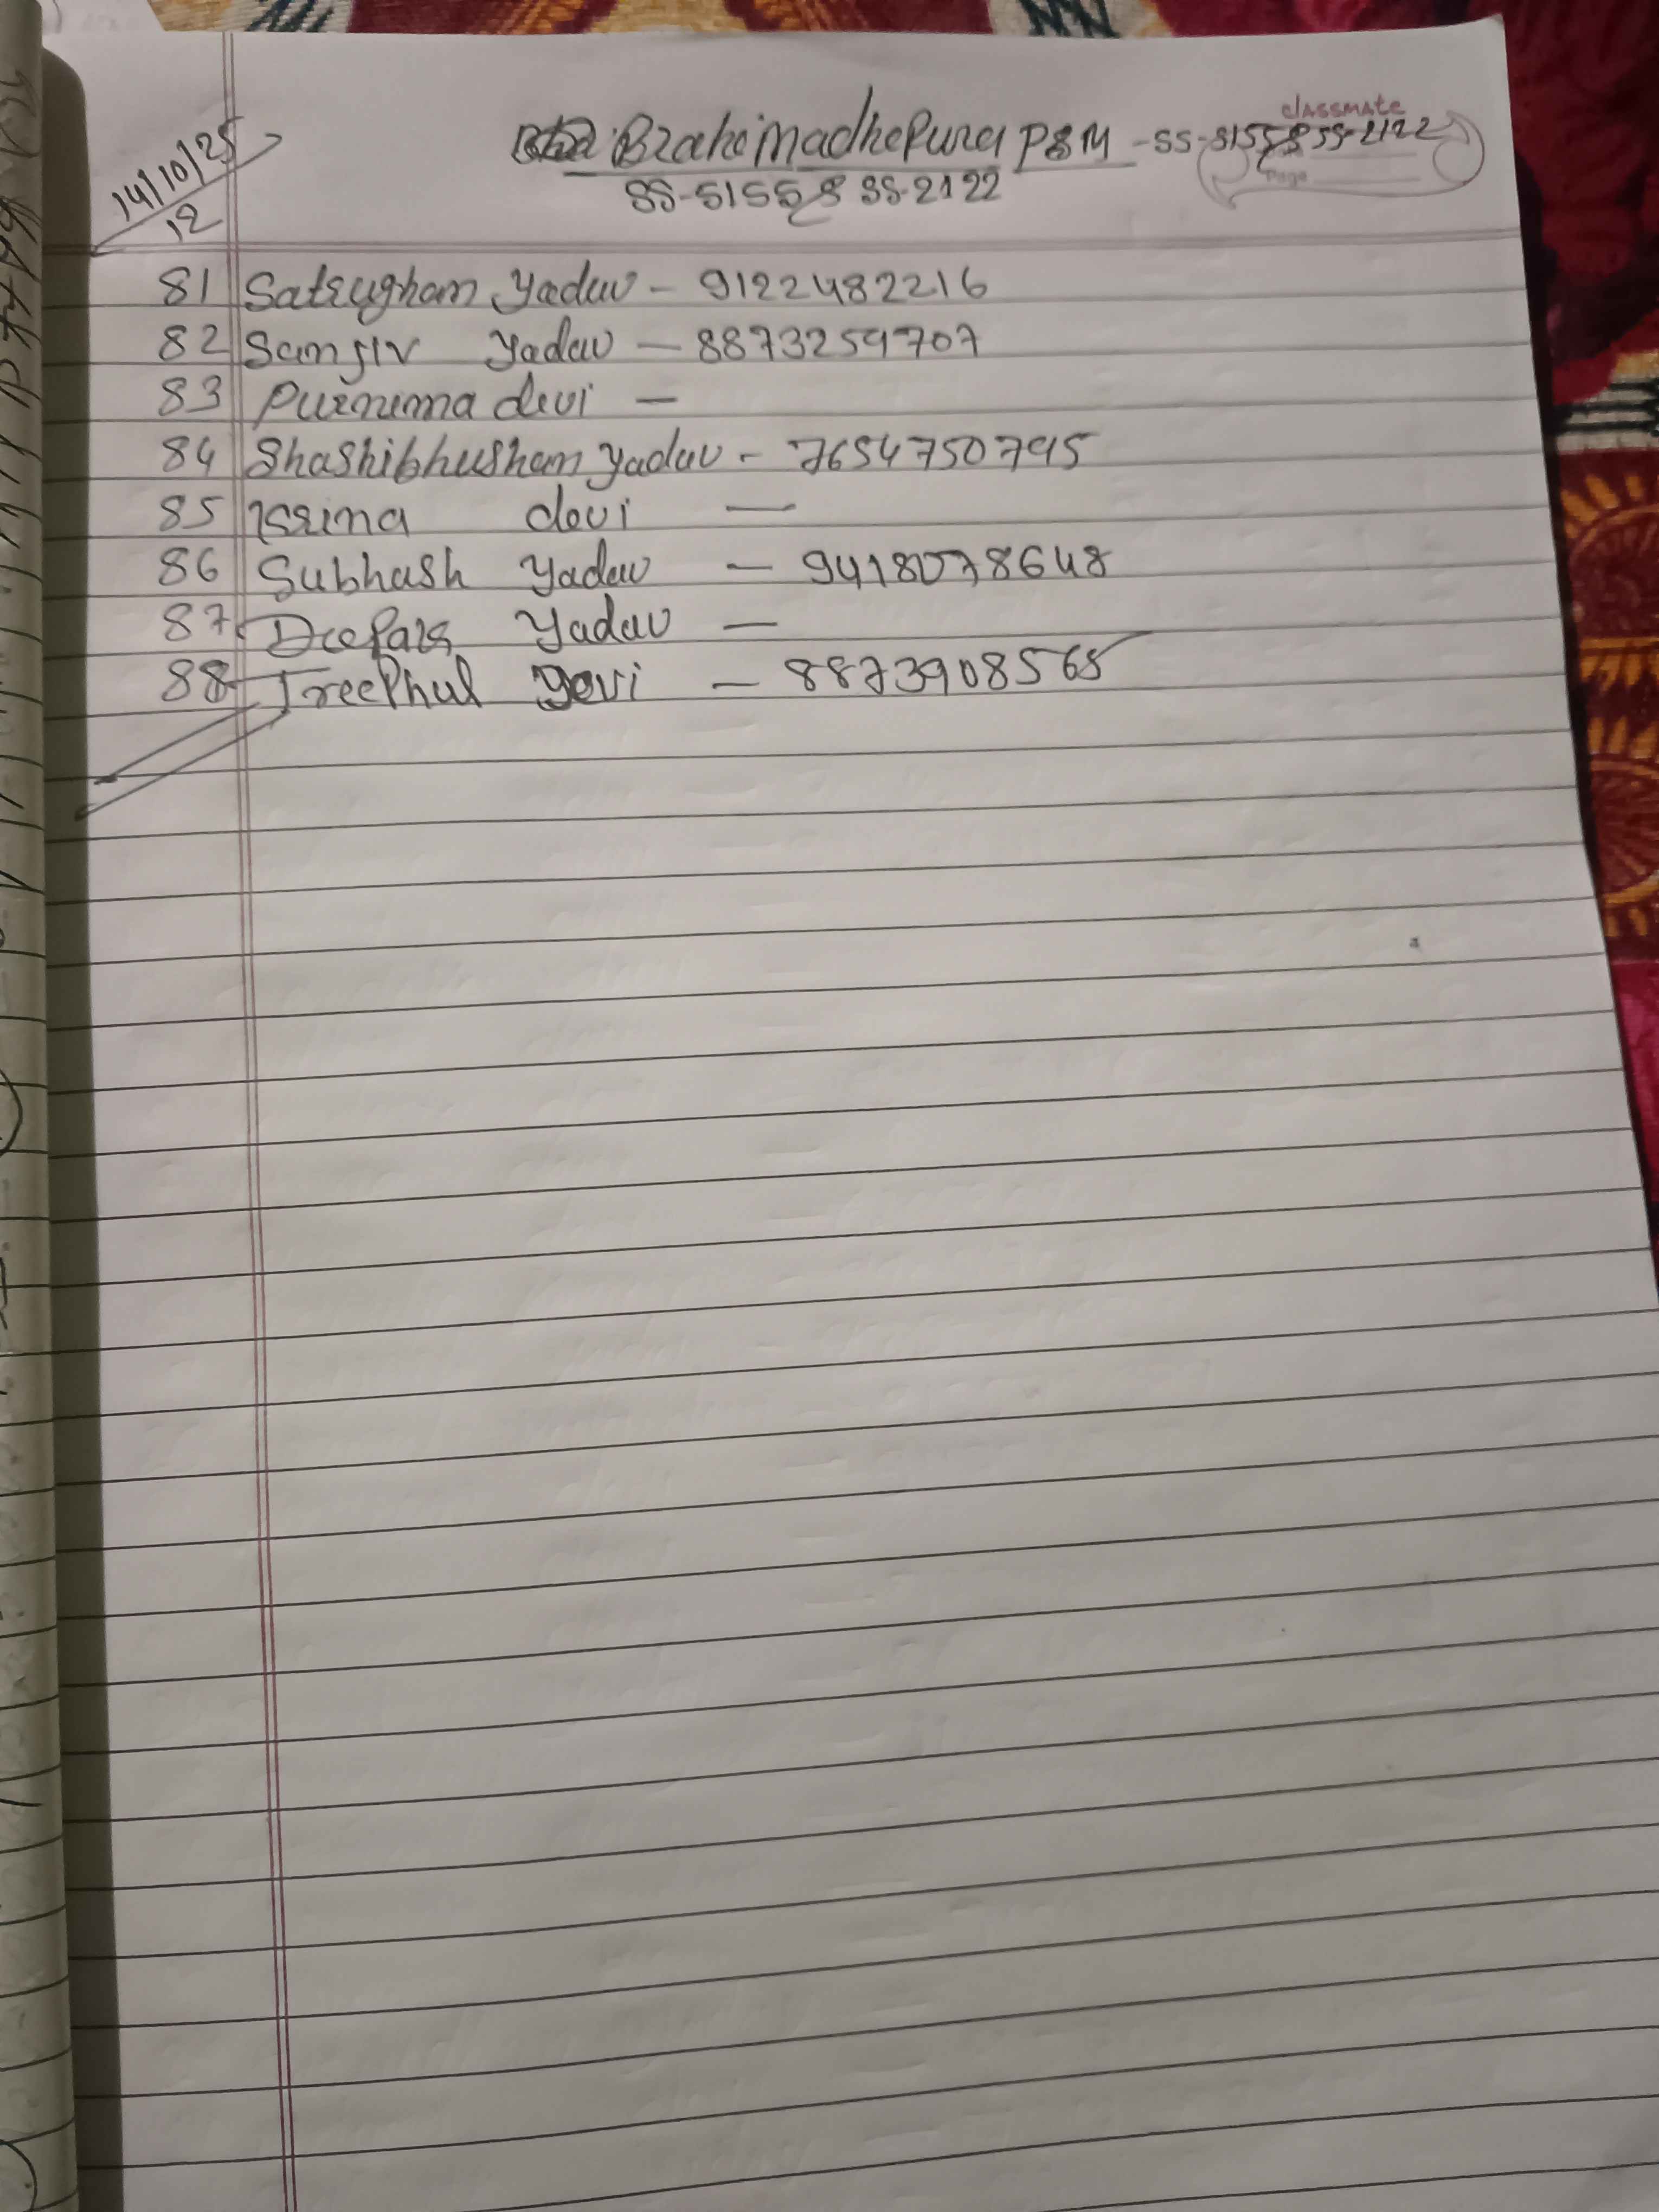 14/10/25
12
Brahimadhepura PSM - SS-5155 & SS-2122
SS-5155 & SS-2122
classmate
Page
81 Satrugham Yadav - 9122482216
82 Sanjiv Yadav - 8873259707
83 Purnima devi -
84 Shashibhusham yadav - 7654750795
85 Krina devi -
86 Subhash Yadav - 9418078648
87 Deepak Yadav -
88 Treephul Devi - 8873908565